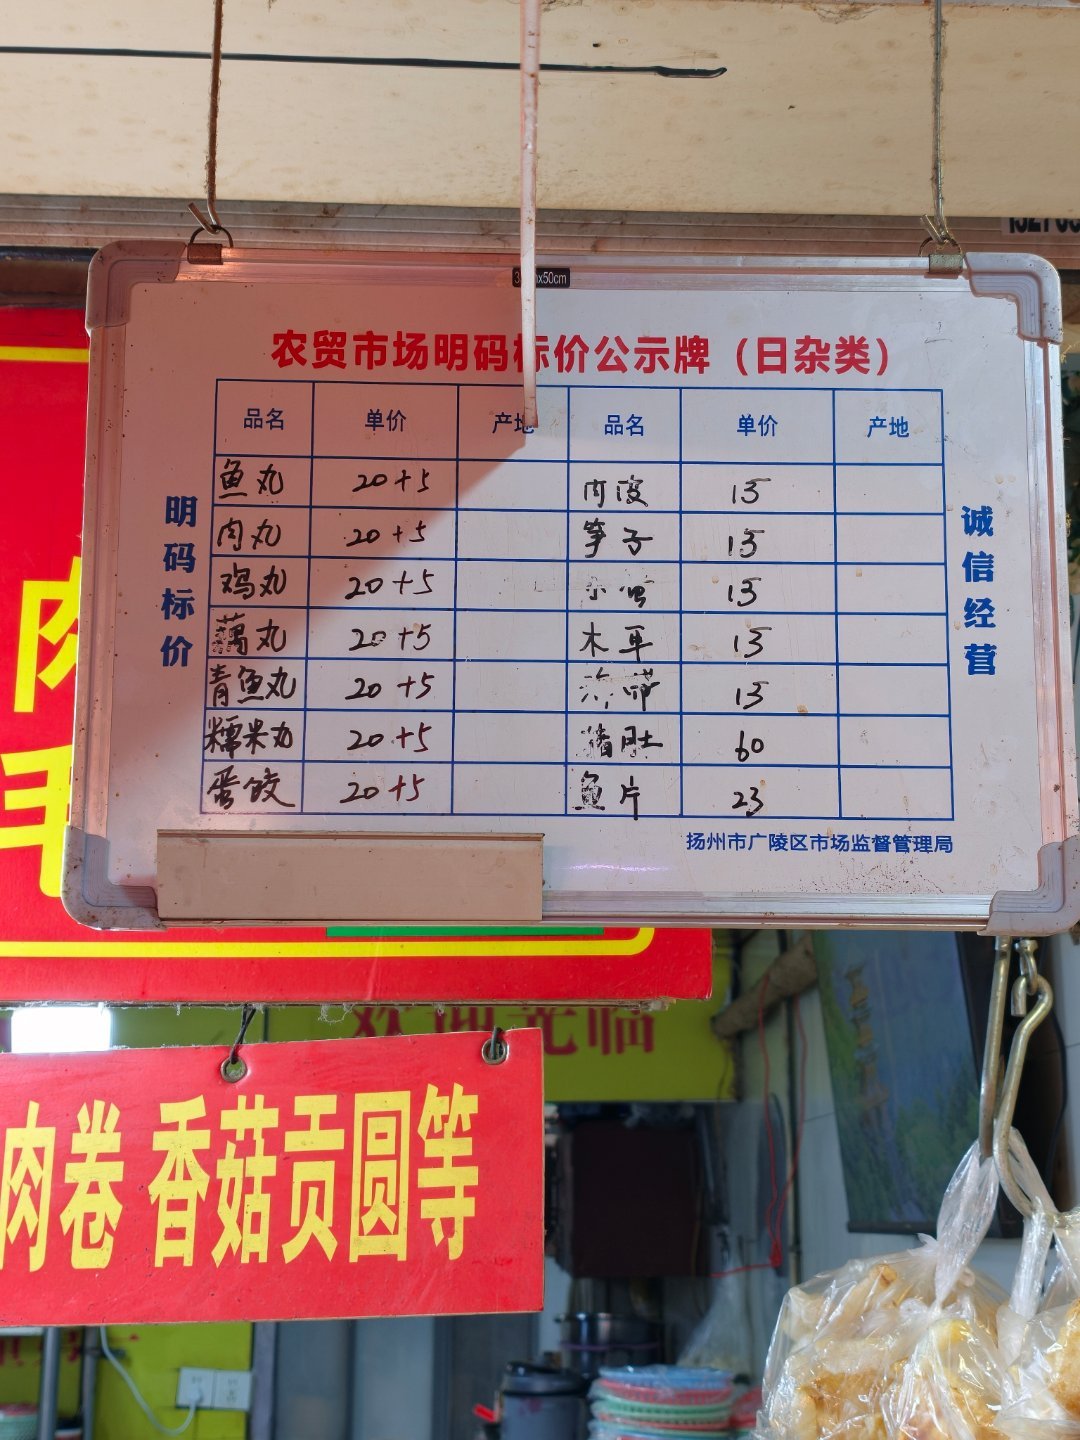 农贸市场明码标价公示牌（日杂类）
明码标价
诚信经营
品名 单价 产地 品名 单价 产地
鱼丸 20+5 肉皮 15
肉丸 20+5 笋子 15
鸡丸 20+5 15
藕丸 20+5 木耳 15
青鱼丸 20+5 15
糯米丸 20+5 猪肚 60
蛋饺 20+5 鱼片 23
扬州市广陵区市场监督管理局
肉
毛
欢迎光临
肉卷 香菇贡圆等